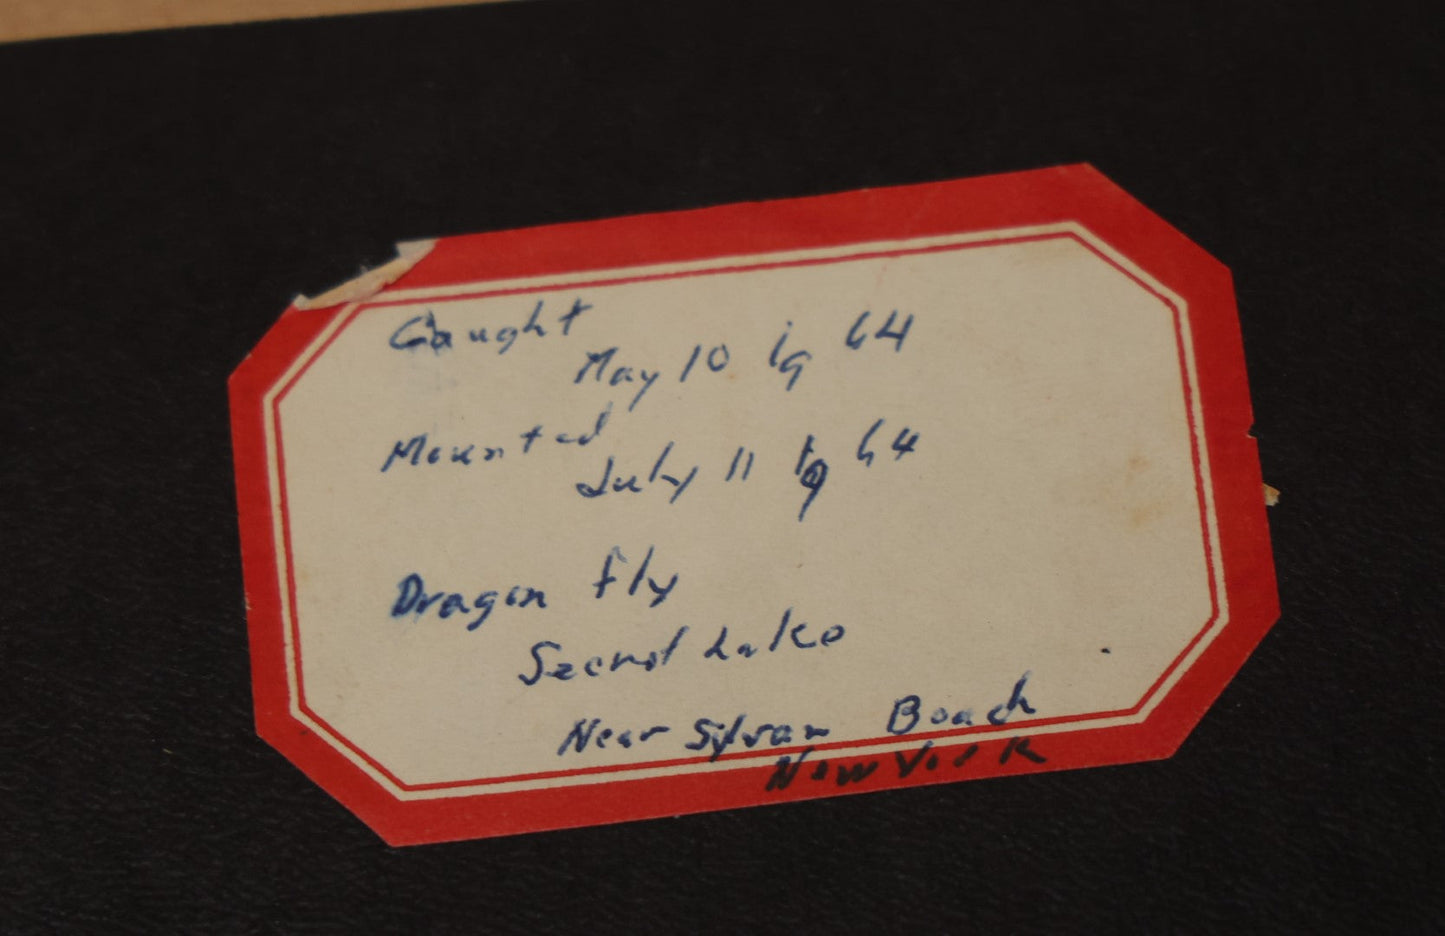 Caught
May 10 1964
Mounted
July 11 1964
Dragon fly
Secret Lake
Near Sylvan Beach
New York